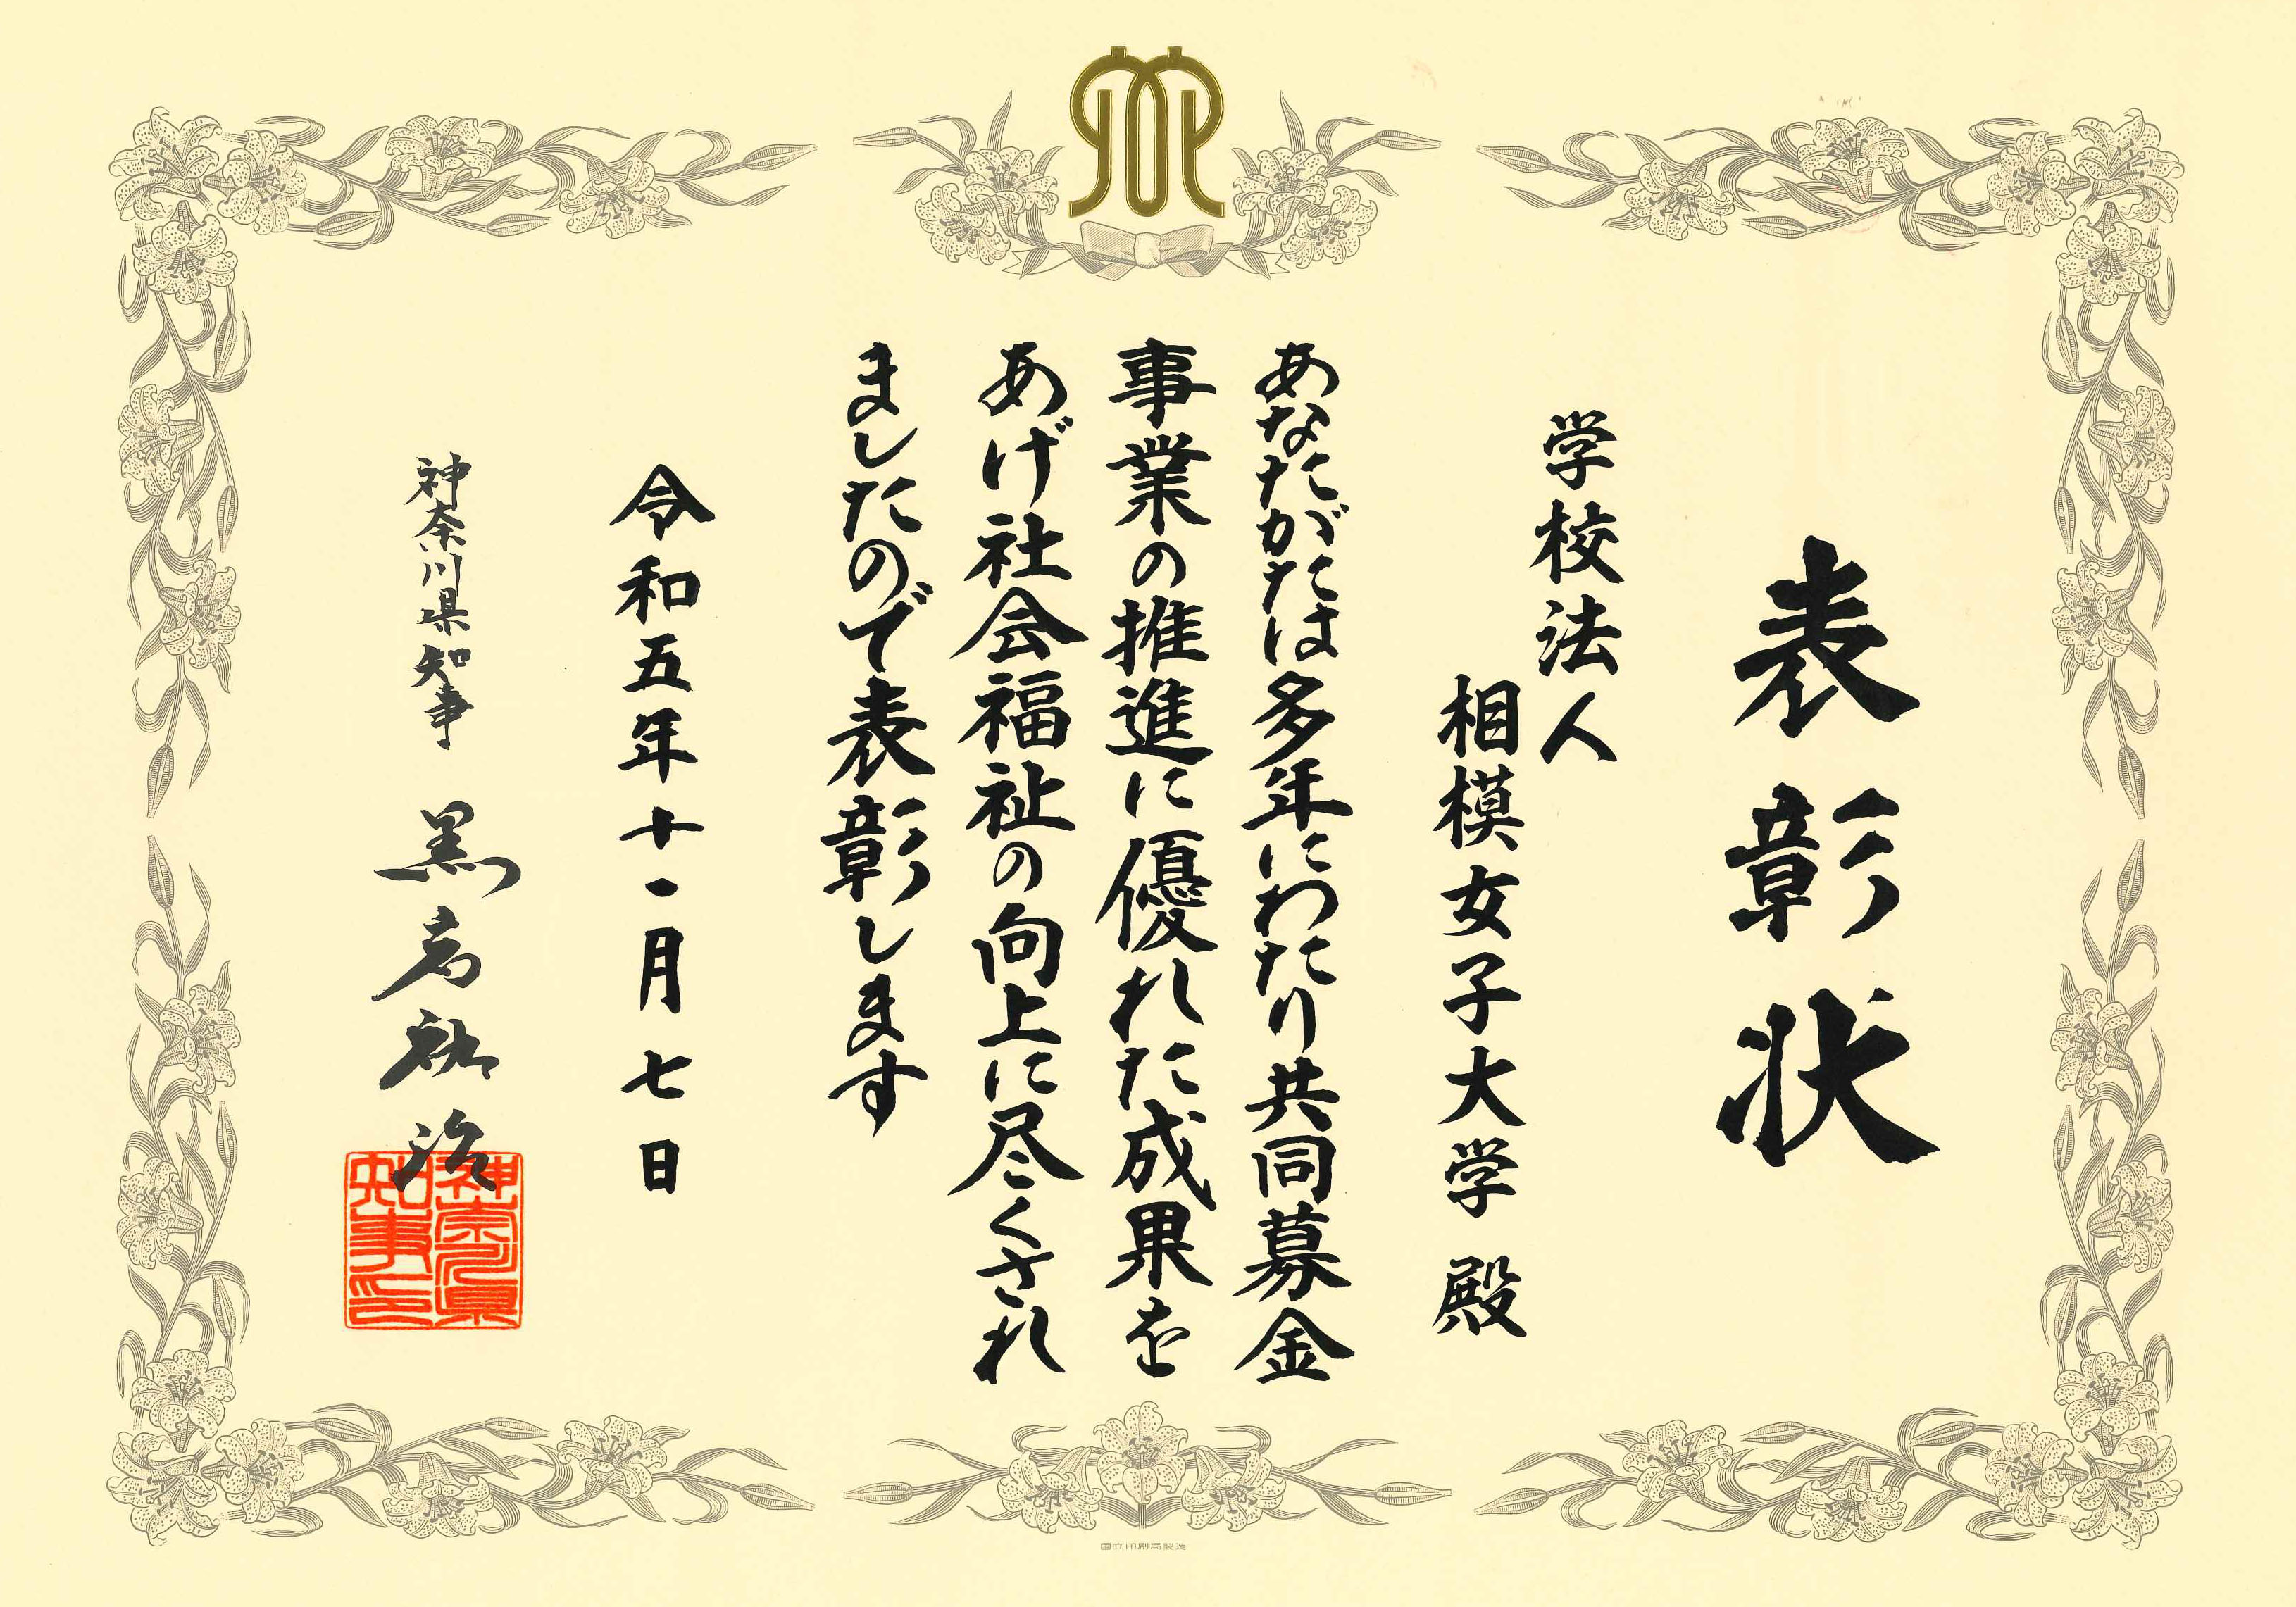 表彰状
学校法人
相模女子大学 殿
あなたがたは多年にわたり共同募金
事業の推進に優れた成果を
あげ社会福祉の向上に尽くされ
ましたので表彰します
令和五年十一月七日
神奈川県知事 黒岩祐治
神奈川県
知事印
国立印刷局製造